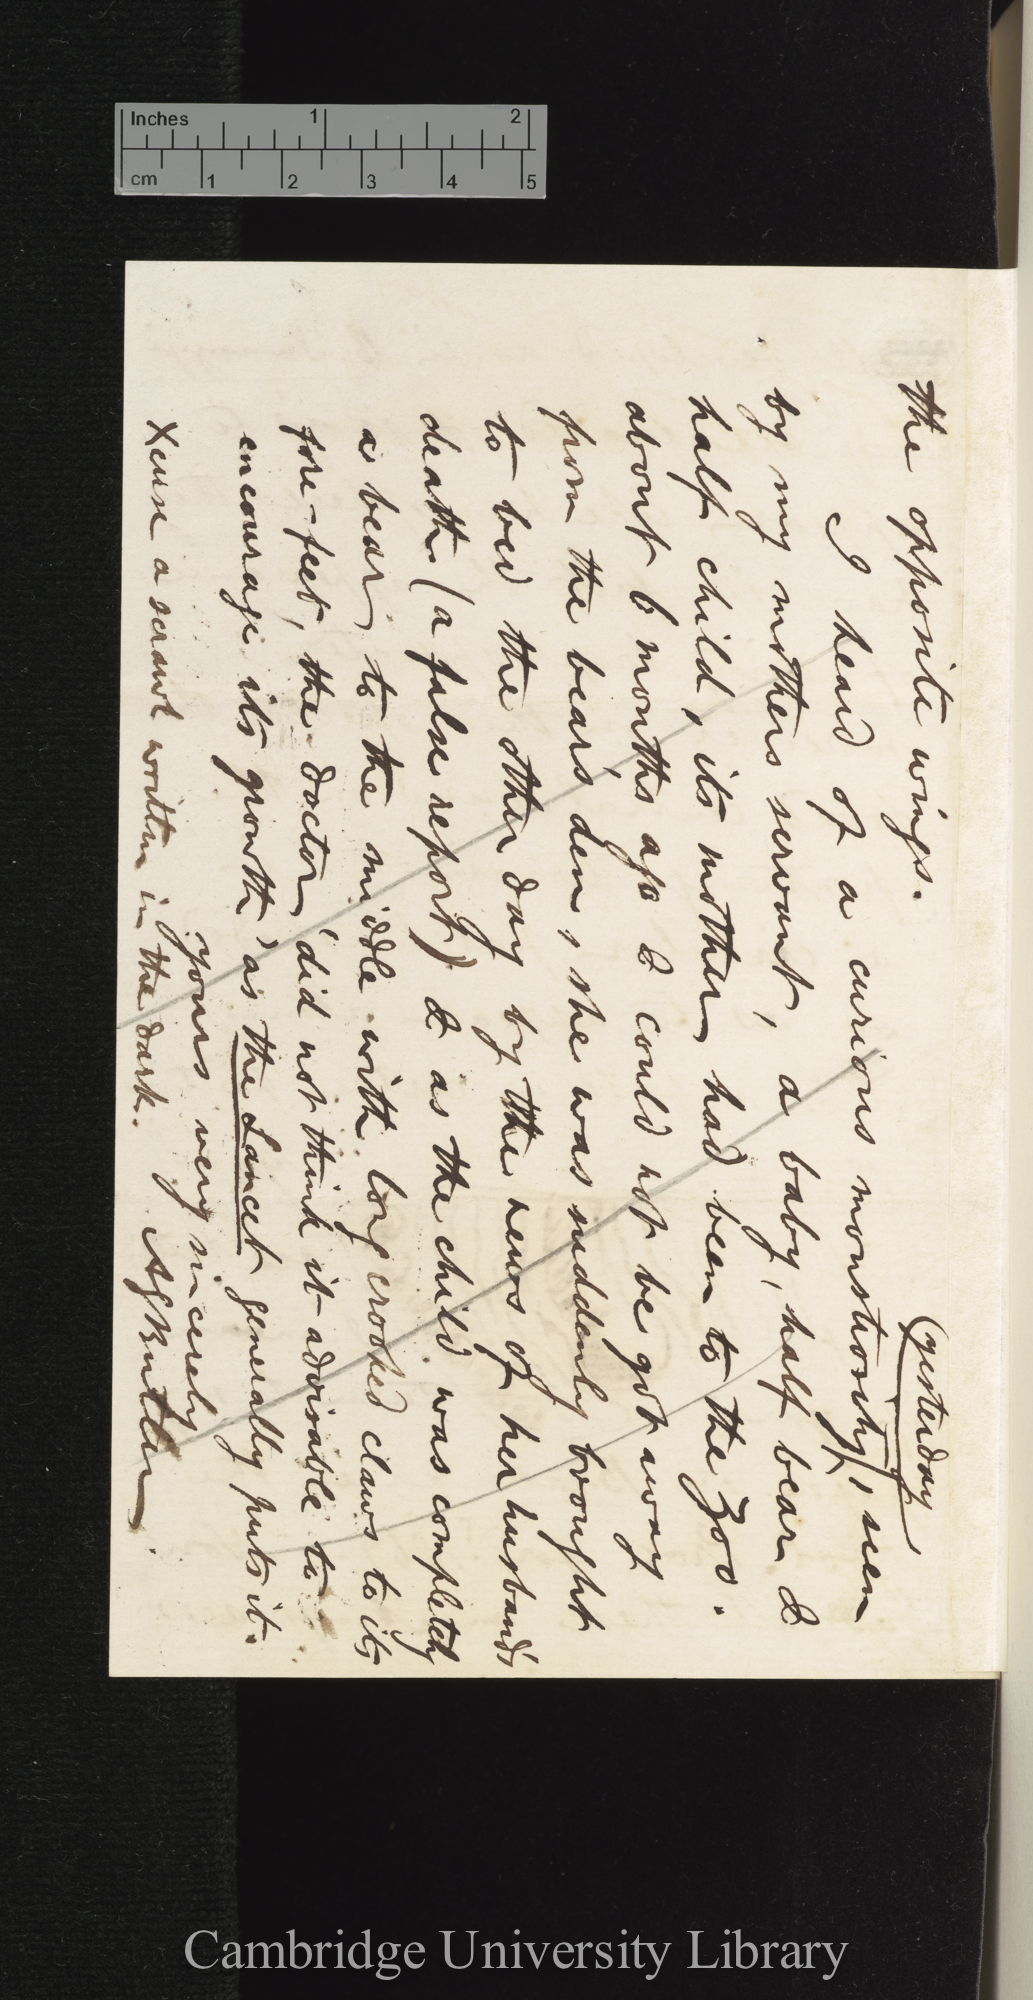 Inches 1 2
cm 1 2 3 4 5
the opposite wings.
(yesterday)
I heard of a curious monstrosity, seen
by my mothers servant, a baby, half bear &
half child, its mother had been to the Zoo.
about 6 months ago & could not be got away
from the bear's den, she was suddenly brought
to bed the other day by the news of her husband's
death (a false report) & as the child was completely
a bear to the middle with long crooked claws to its
fore-feet, the doctor 'did not think it advisable to
encourage its growth', as the Lancet generally puts it.
yours very sincerely
A G Butler
Xcuse a scrawl written in the dark.
Cambridge University Library